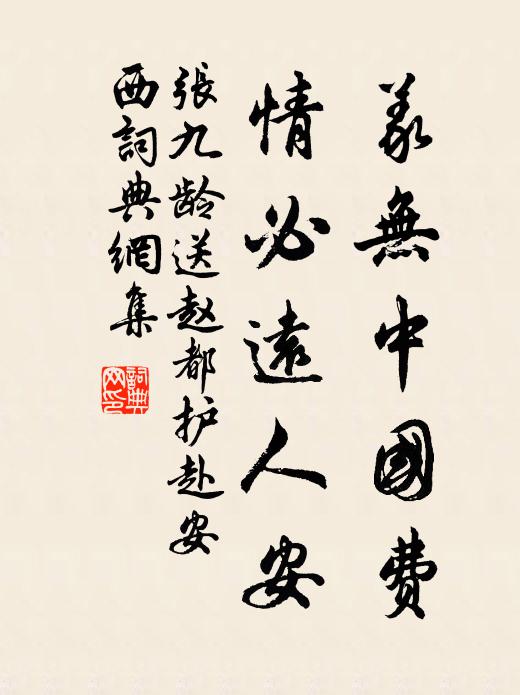 義無中國費
情必遠人安
張九龄送赵都护赴安
西詞典網集
詞典
网印